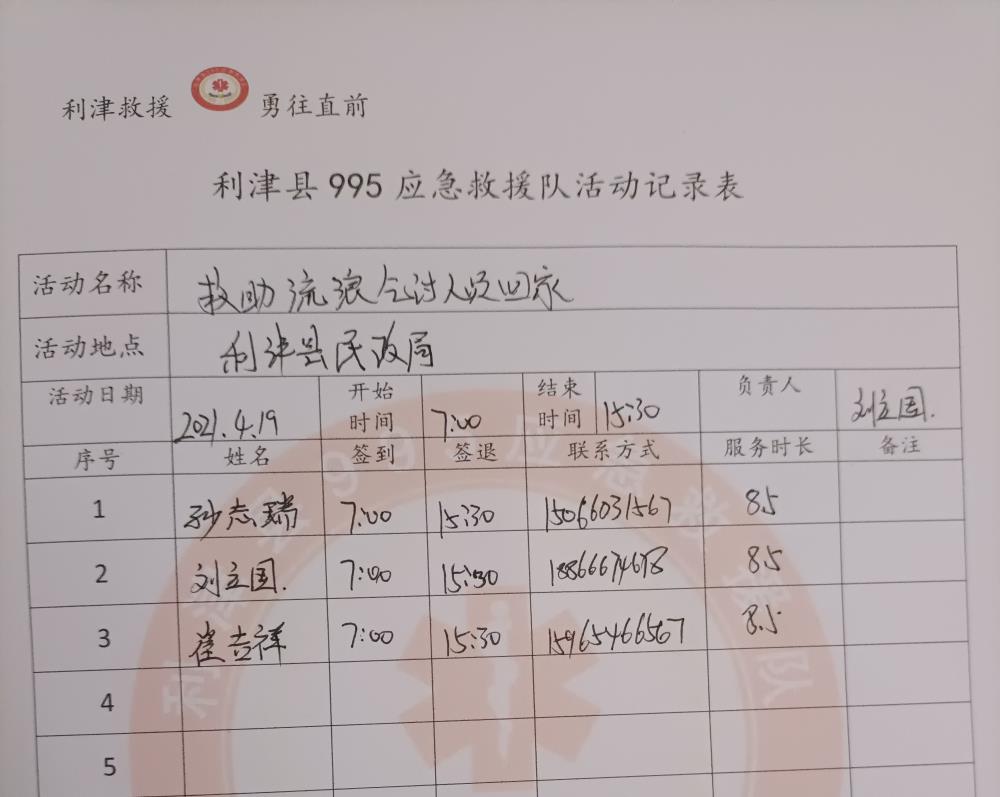 利津救援 勇往直前
利津县 995 应急救援队活动记录表
活动名称 救助流浪乞讨人员回家
活动地点 利津县民政局
活动日期 2021.4.19 开始时间 7:00 结束时间 15:30 负责人 刘立国.
序号 姓名 签到 签退 联系方式 服务时长 备注
1 孙志瑞 7:00 15:30 15066031567 8.5
2 刘立国. 7:00 15:30 18866674678 8.5
3 崔吉祥 7:00 15:30 15965466567 8.5
4
5